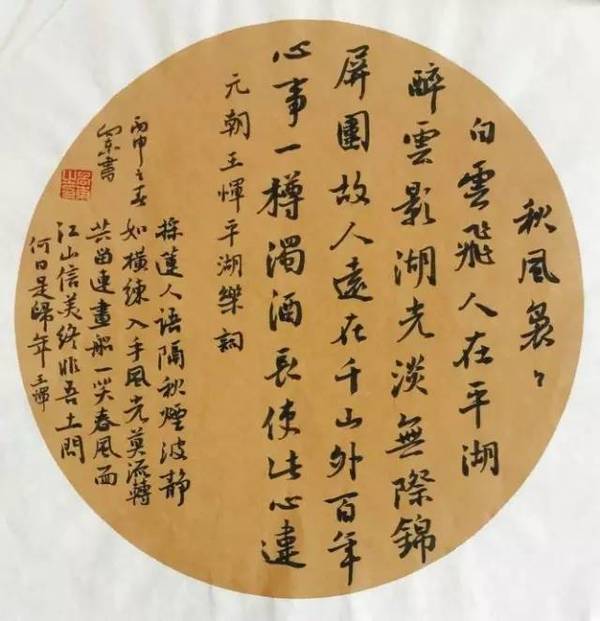 秋風裊々
白雲飛人在平湖
醉雲影湖光淡無際錦
屏圍故人遠在千山外百年
心事一樽濁酒長使此心違
元朝王惲平湖樂詞
採蓮人語隔秋煙波靜
如橫練入手風光莫流轉
共留連畫船一笑春風面
江山信美終非吾土問
何日是歸年 王惲
丙申之
東書